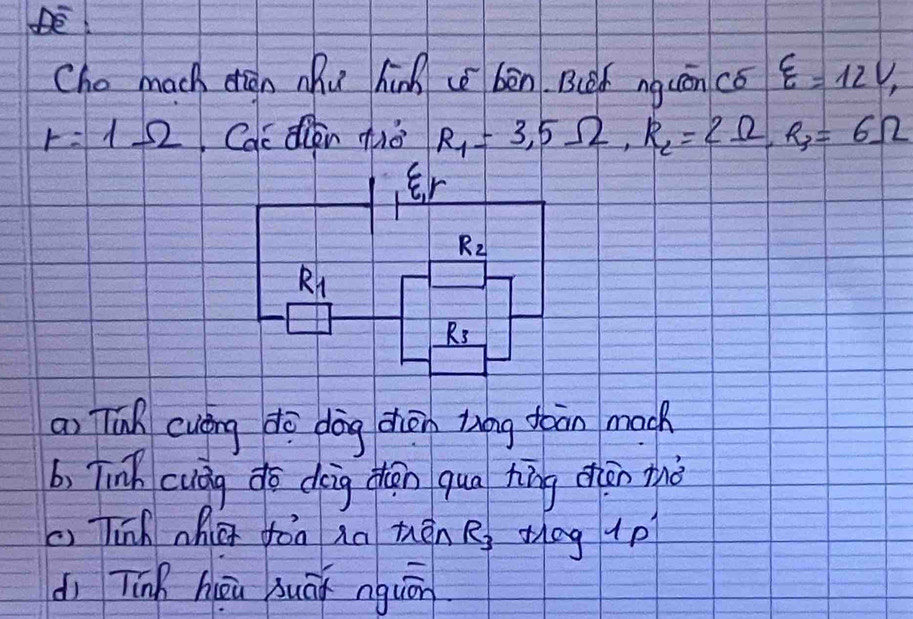 Đề:
Cho mạch điện như hình vẽ bên. Biết nguồn có ξ = 12V,
r = 1Ω. Các điện trở R₁ = 3,5Ω, R₂ = 2Ω, R₃ = 6Ω
ξ,r
R2
R1
R3
a) Tính cường độ dòng điện trong toàn mạch
b) Tính cường độ dòng điện qua từng điện trở
c) Tính nhiệt tỏa ra trên R₃ trong 1p'
d) Tính hiệu suất nguồn.